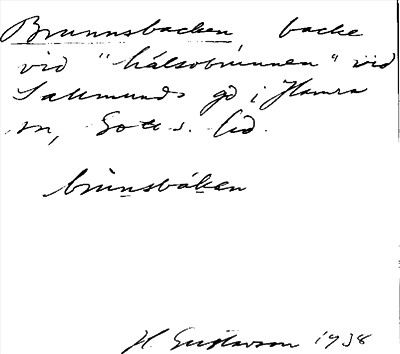 Brunnsbacken backe
vid "hälsobrunnen" vid
gd i Hamra
sn, Gotl. s.
brùnsbákan
H Gustavson 1938